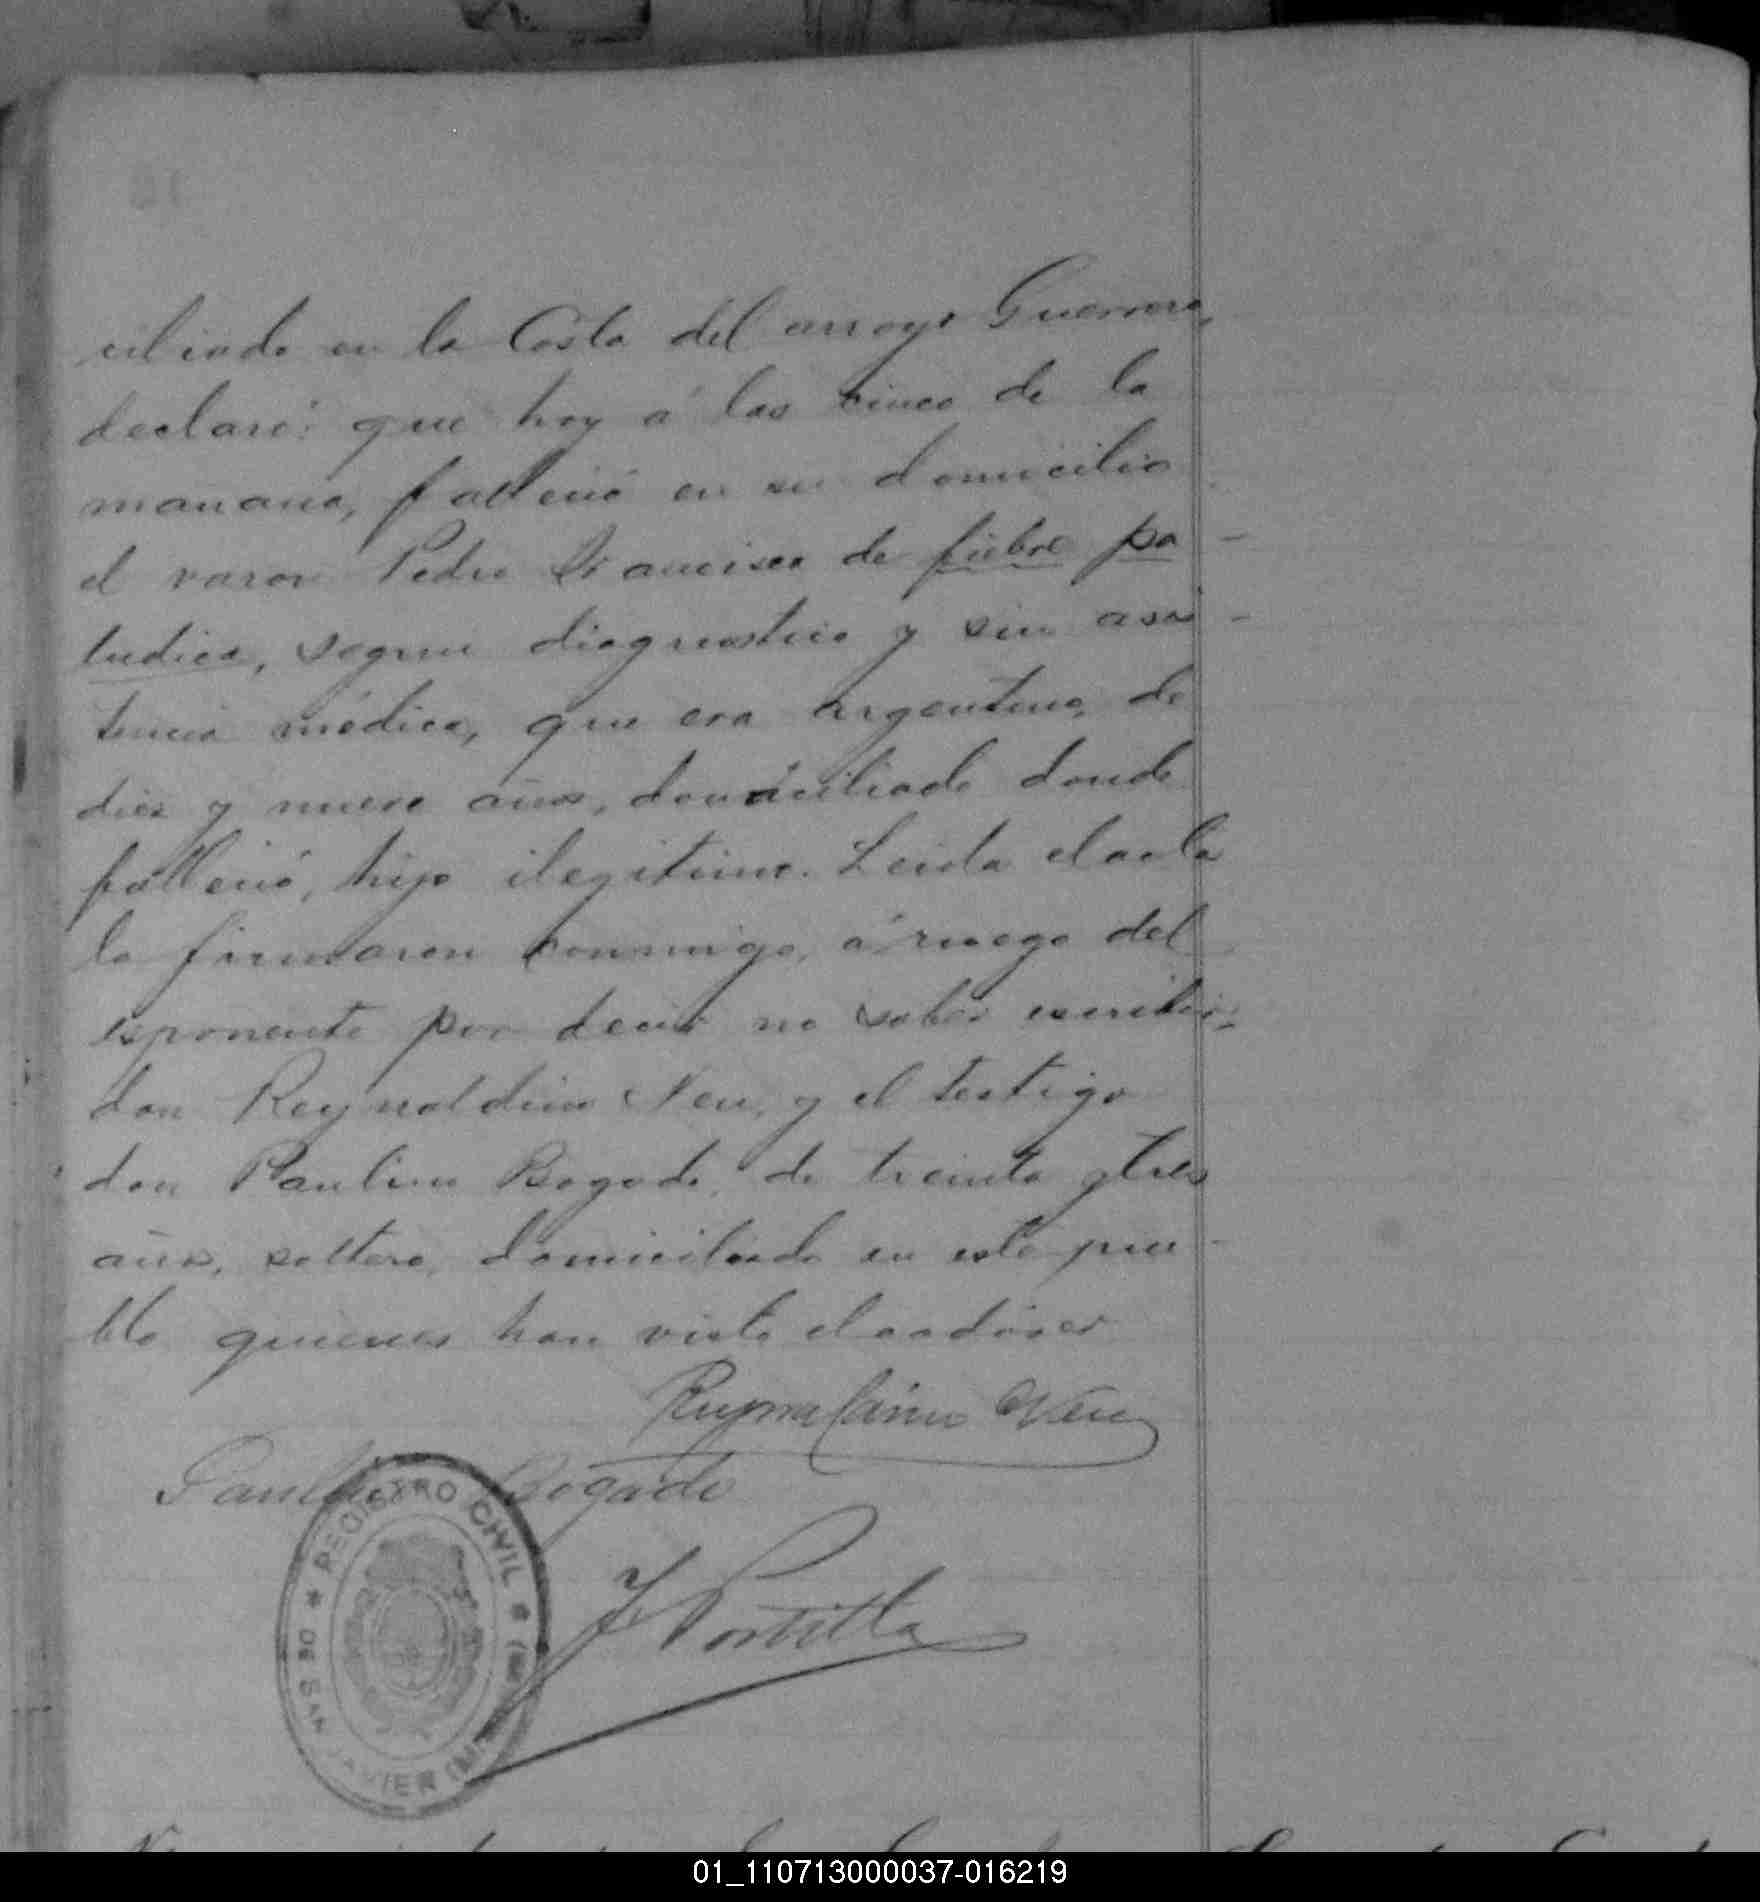 ciliado en la Costa del arroyo Guerrero,
declaró: que hoy á las cinco de la
mañana, falleció en su domicilio
el varon Pedro Francisco de fiebre pa-
ludica, segun diagnostico y sin asis-
tencia médica, que era argentino, de
diez y nueve años, domiciliado donde
falleció, hijo ilegitimo. Leida el acta
la firmaron conmigo, á ruego del
esponente por decir no saber escribir,
don Reynaldino Neu, y el testigo
don Paulino Bogado, de treinta y tres
años, soltero, domiciliado en este pue-
blo quienes han visto el cadáver
Reynaldino Neu
Paulino Bogado
J Portilla
REGISTRO CIVIL
DE SAN JAVIER
01_110713000037-016219